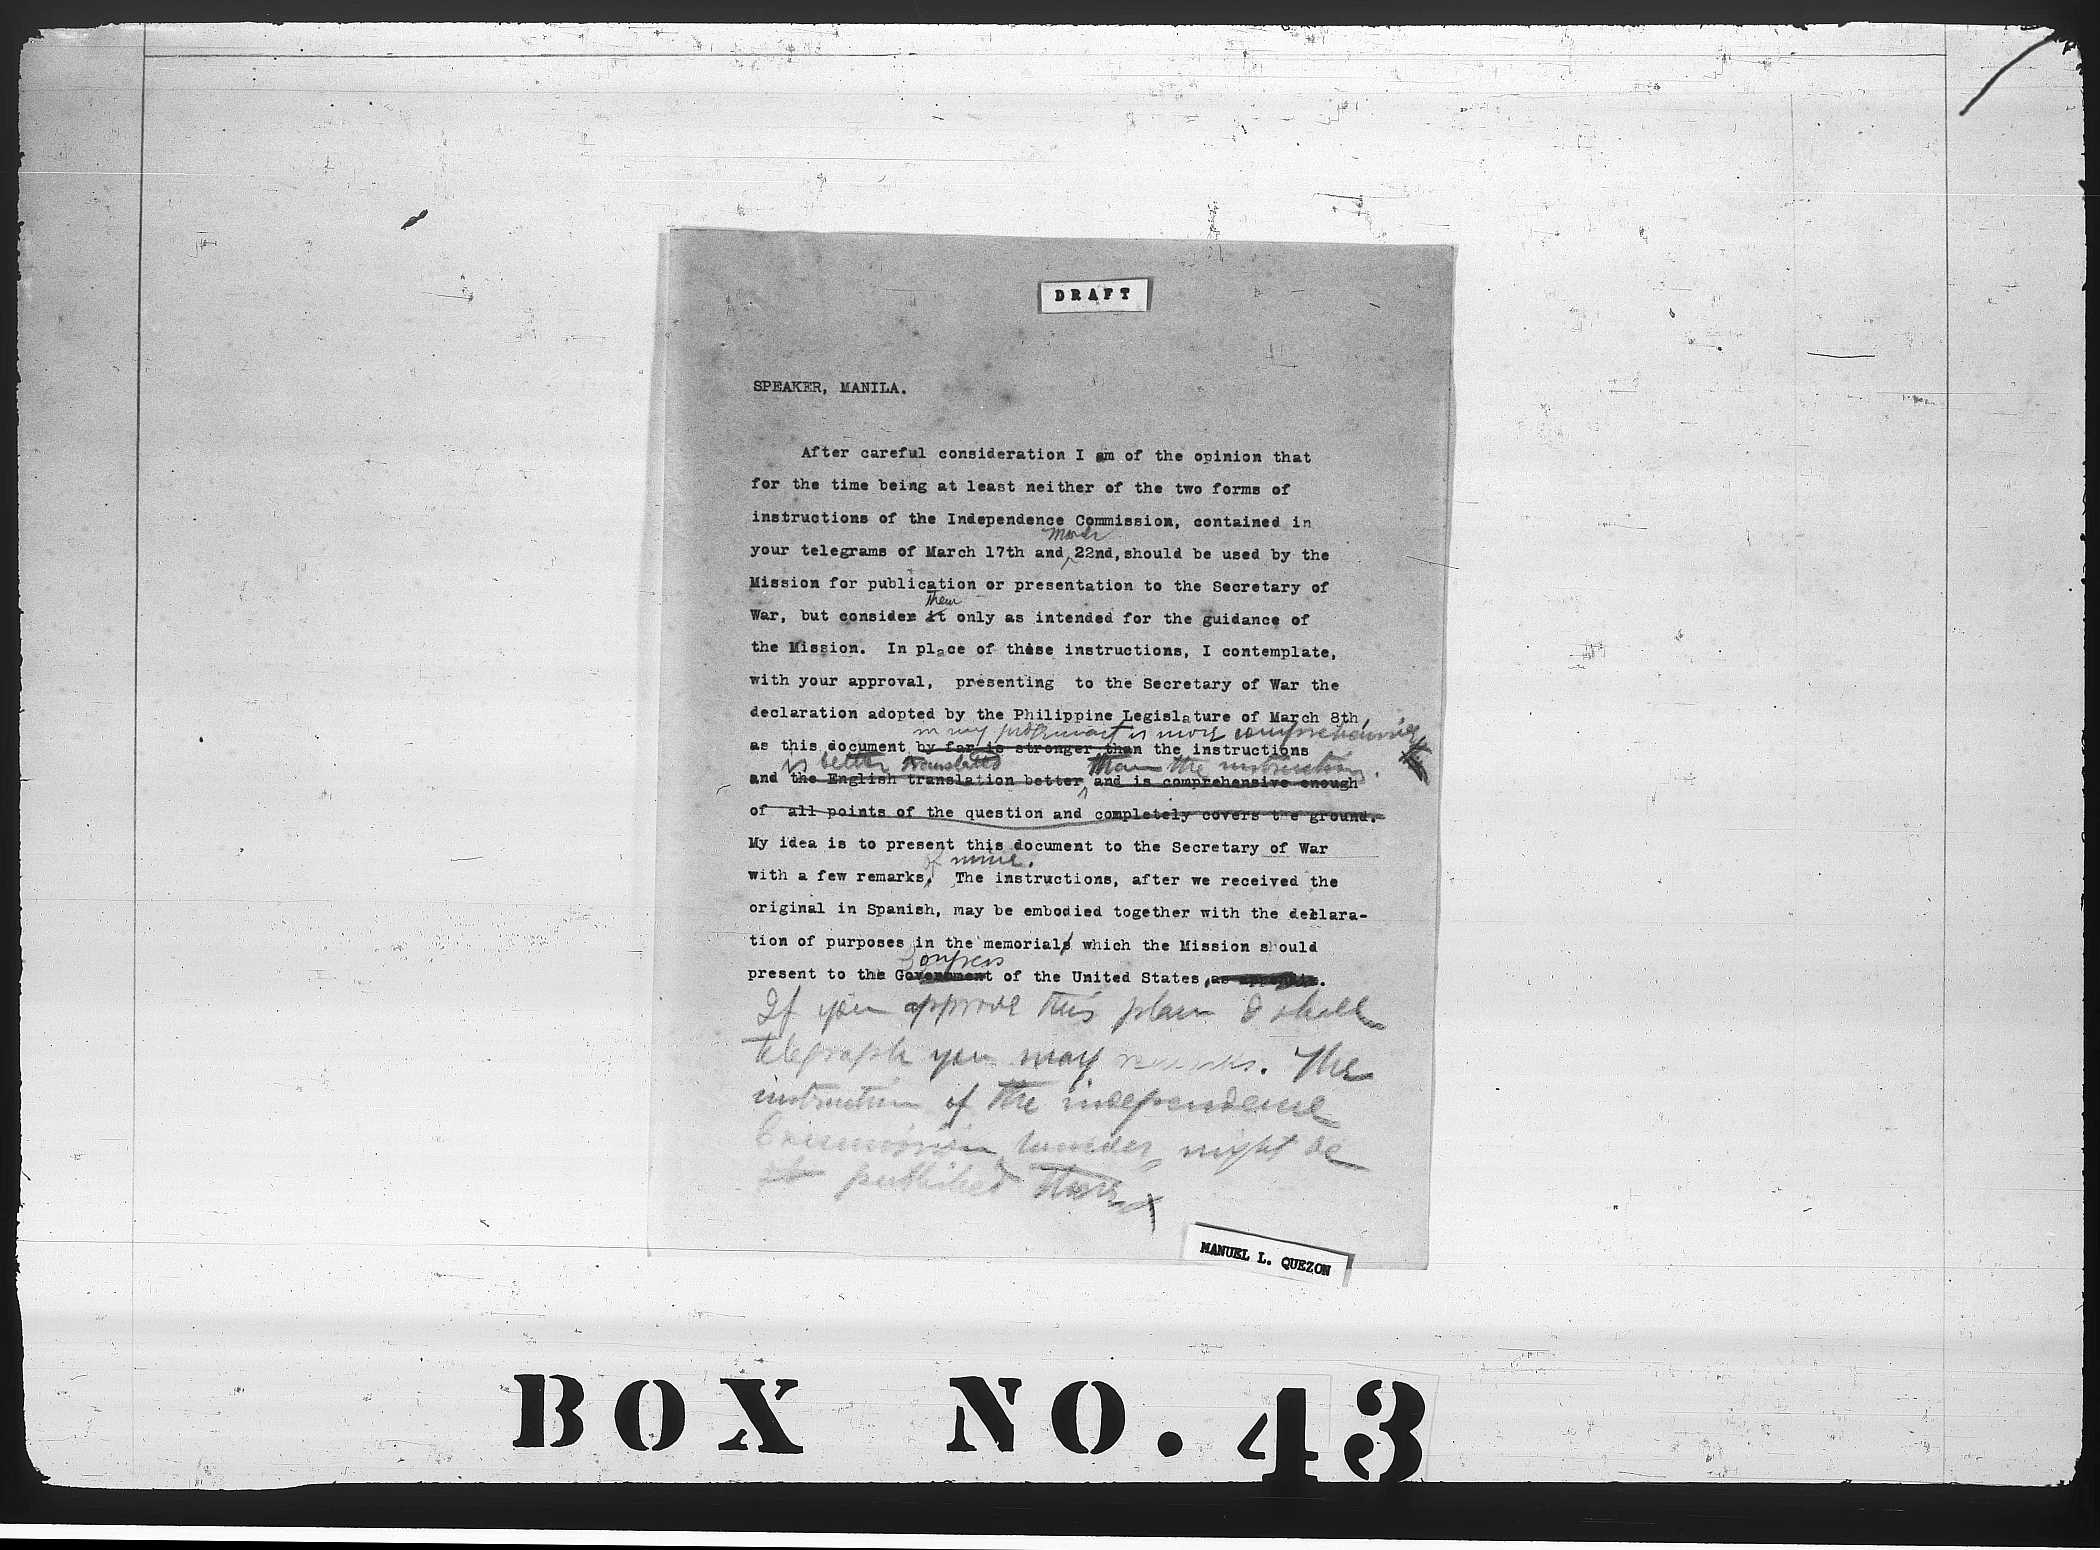 DRAFT
SPEAKER, MANILA.
After careful consideration I am of the opinion that
for the time being at least neither of the two forms of
instructions of the Independence Commission, contained in
March
your telegrams of March 17th and 22nd, should be used by the
Mission for publication or presentation to the Secretary of
them
War, but consider it only as intended for the guidance of
the Mission. In place of these instructions, I contemplate,
with your approval, presenting to the Secretary of War the
declaration adopted by the Philippine Legislature of March 8th,
in my judgment is more comprehensive
as this document by far is stronger than the instructions
is better translated than the instructions.
and the English translation better and is comprehensive enough
of all points of the question and completely covers the ground.
My idea is to present this document to the Secretary of War
of mine.
with a few remarks. The instructions, after we received the
original in Spanish, may be embodied together with the declara-
tion of purposes in the memorials which the Mission should
Congress
present to the Government of the United States, as appendix.
If you approve this plan I shall
telegraph you my remarks. The
instruction of the independence
Commission might be
published there
MANUEL L. QUEZON
BOX NO. 43